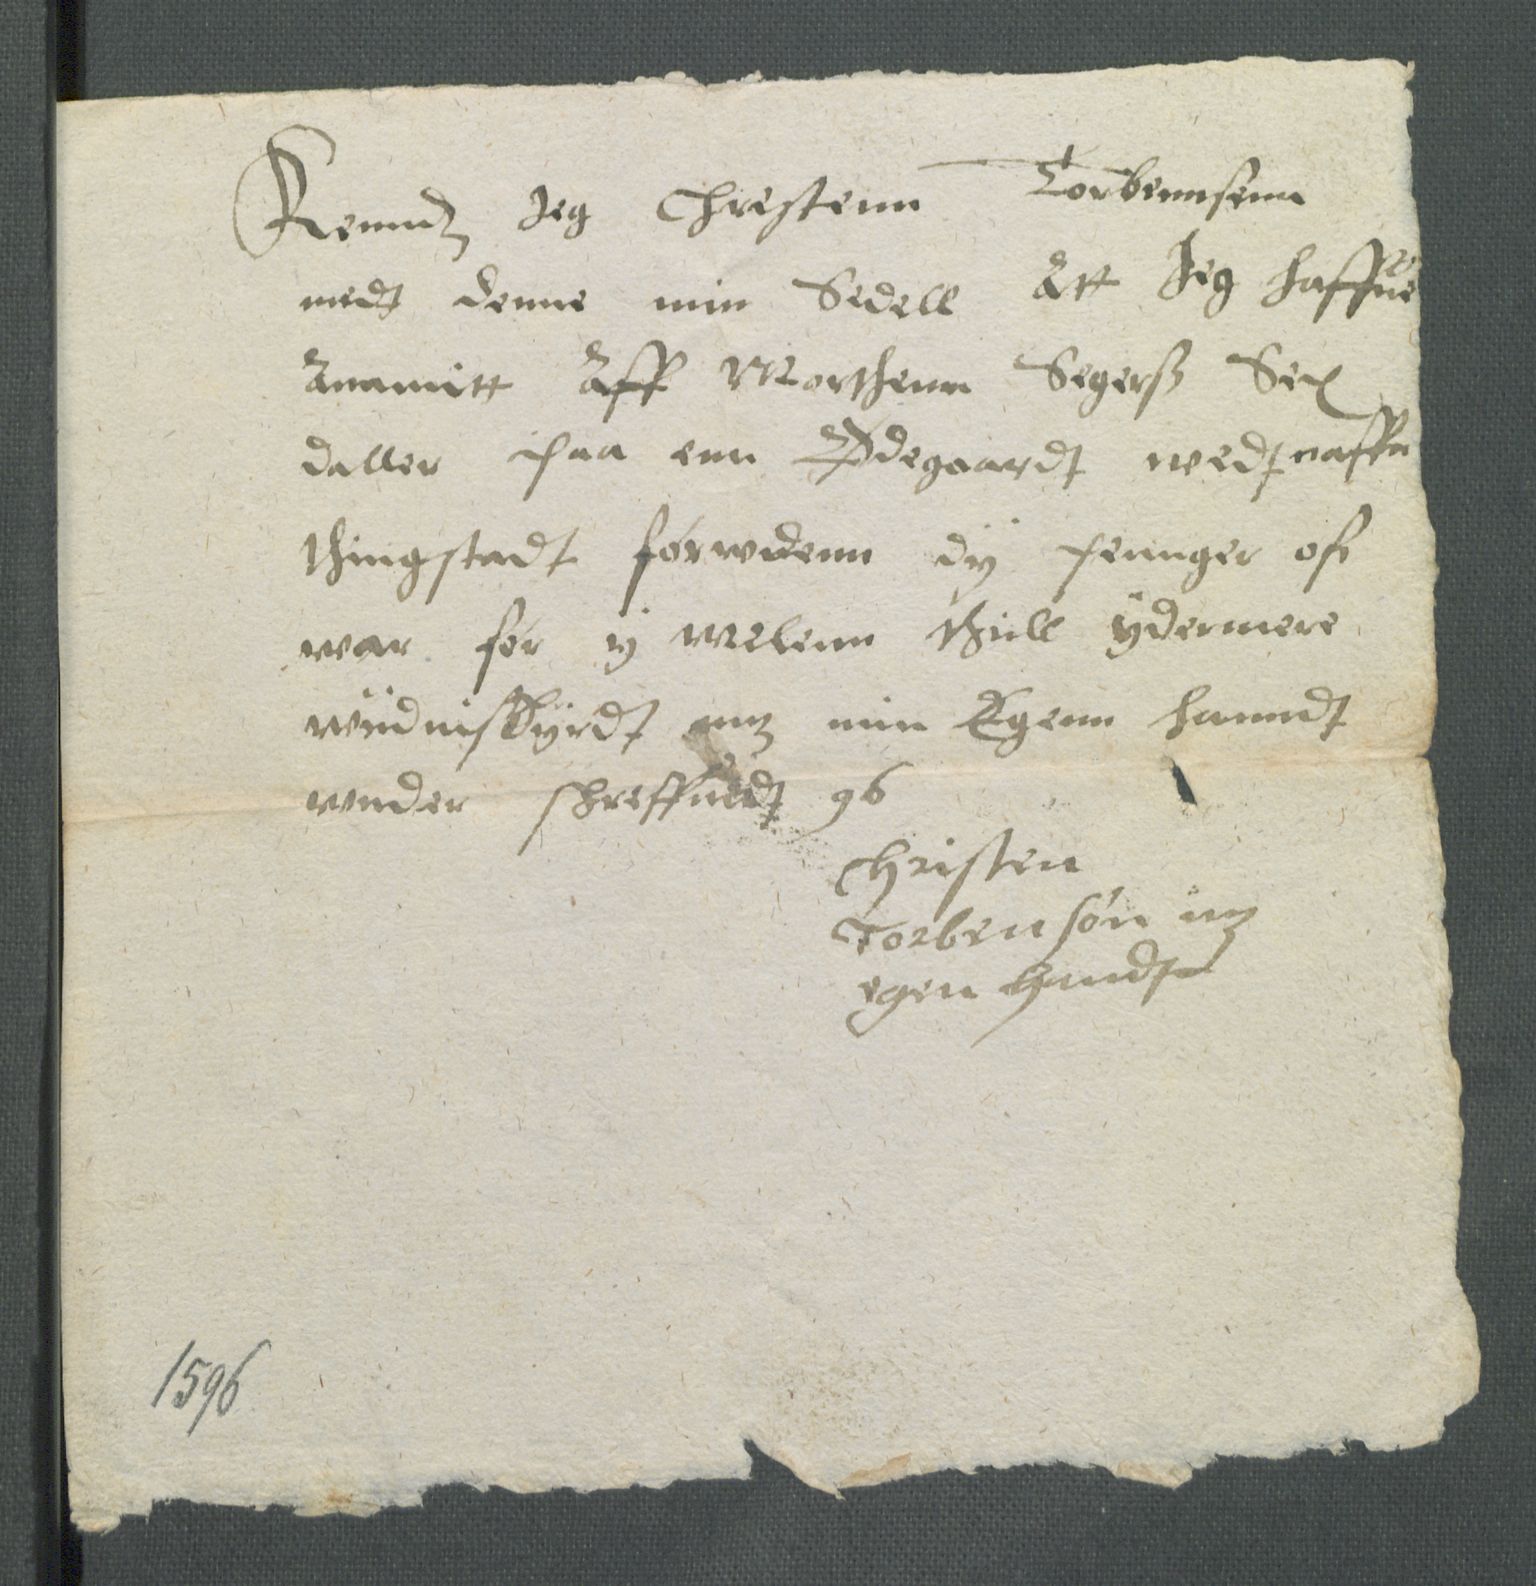 Kenndz Jeg Chrestenn Torbennsenn
medt denne min Sedell Att Jeg haffue
Anamitt Aff Morthenn Segerß Sex
daller paa enn Ødegaardt wedt naffn
thingstadt forwdenn dÿ penninger ofr
war for ÿ welenn thiill ÿdermere
wiidnisbÿrdt mz min Egenn hanndt
wnder schreffuedt 96
Christen
Torbensøn mz
egen handt
1596